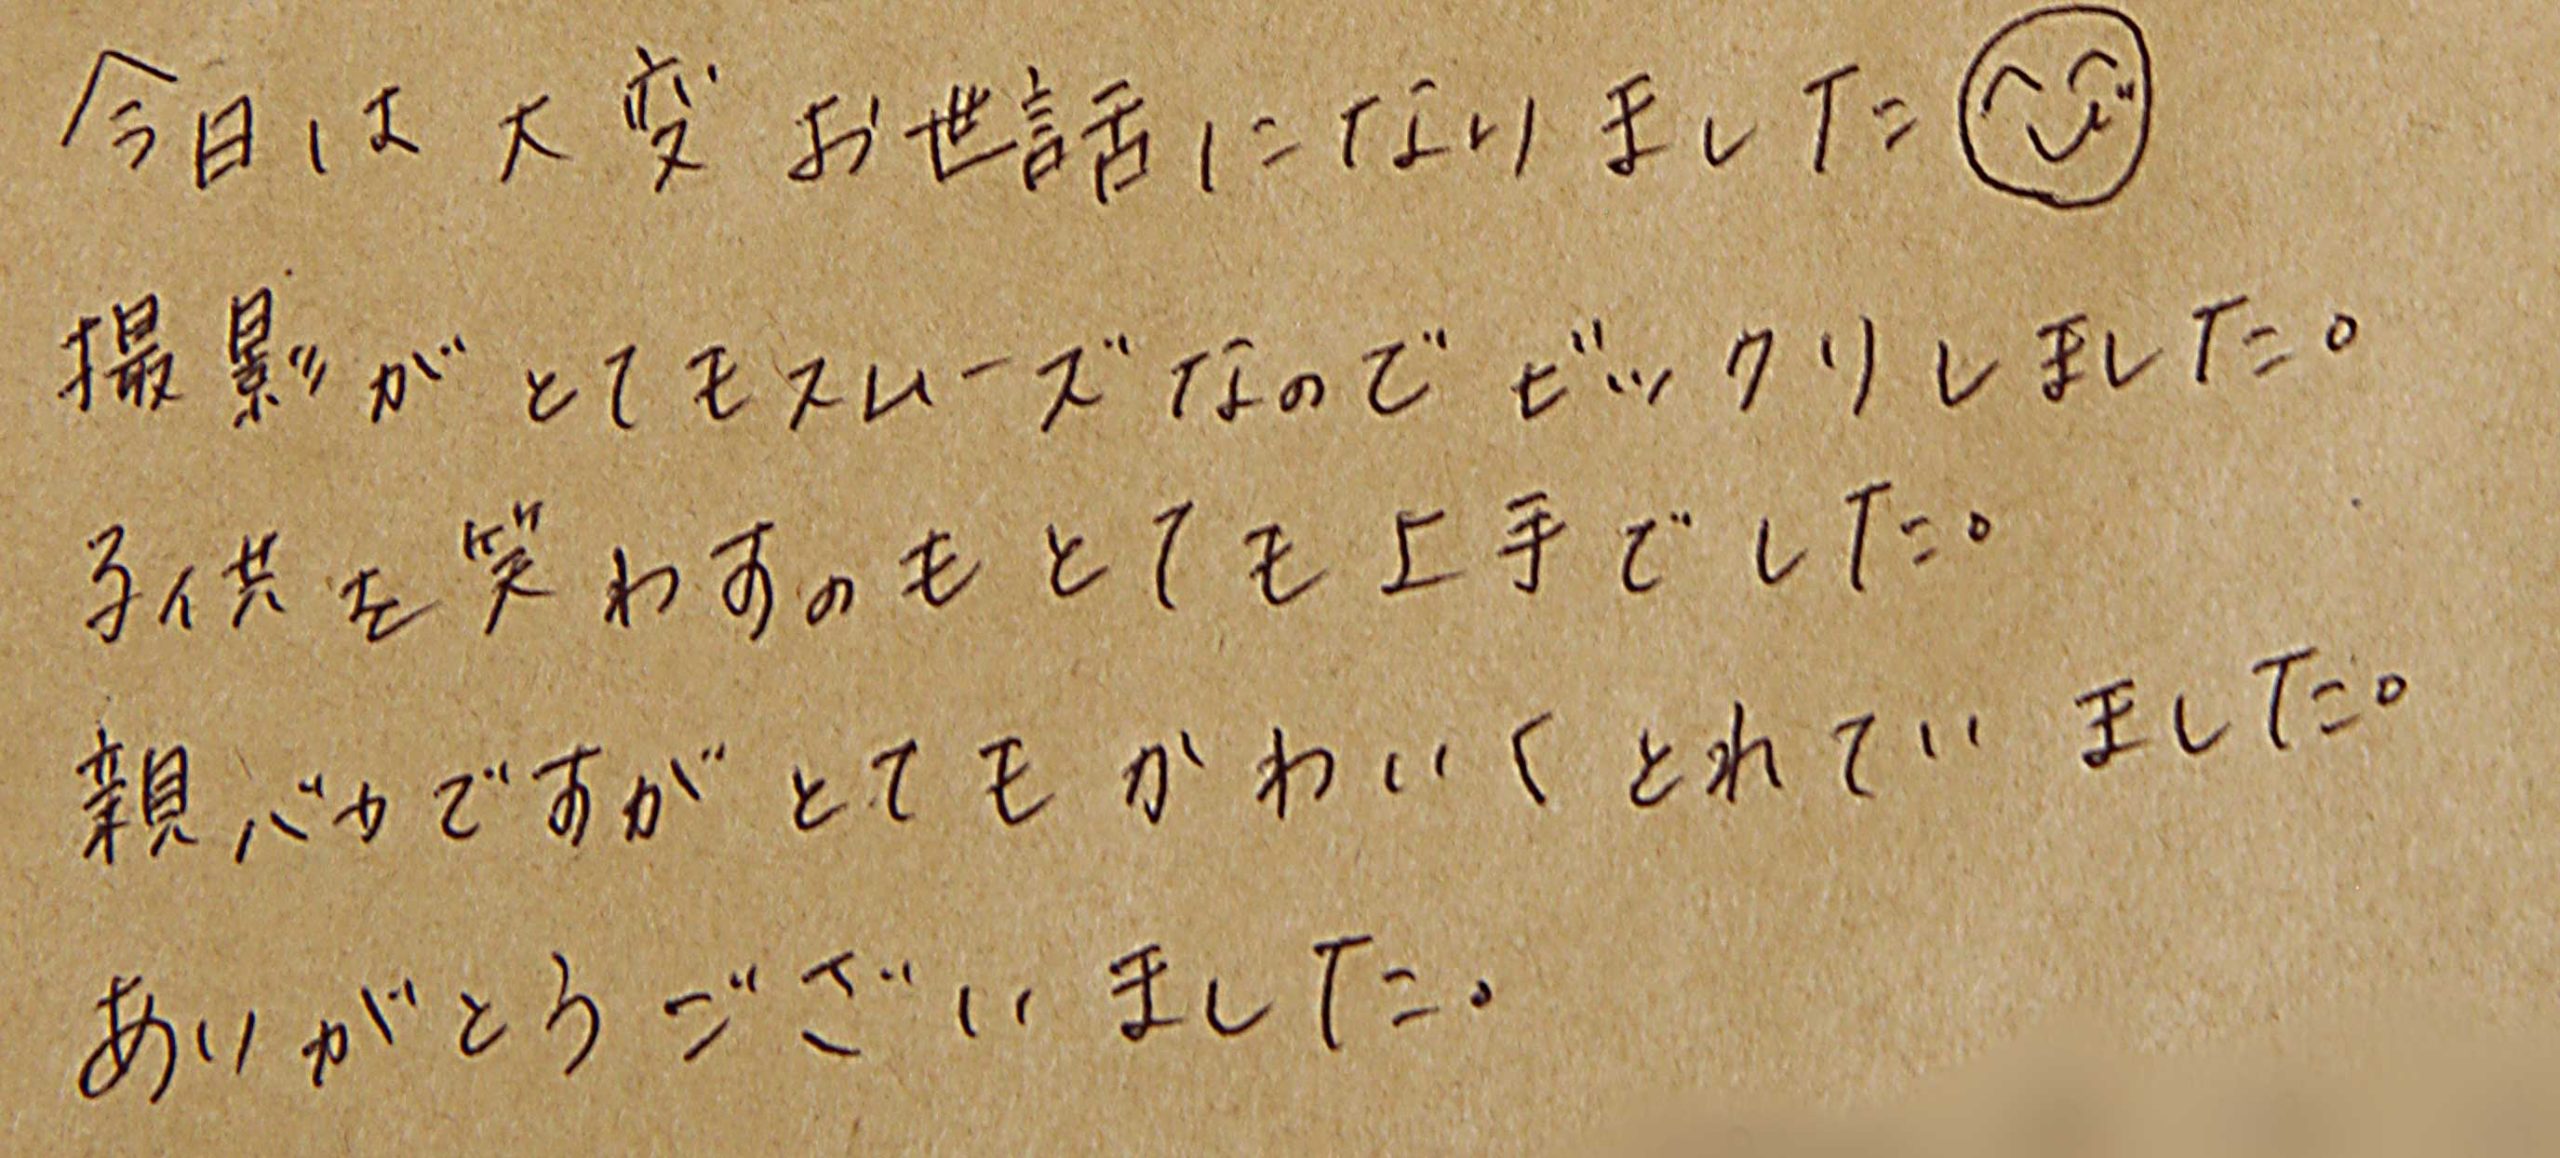 今日は大変お世話になりました
撮影がとてもスムーズなのでビックリしました。
子供を笑わすのもとても上手でした。
親バカですがとてもかわいくとれていました。
ありがとうございました。